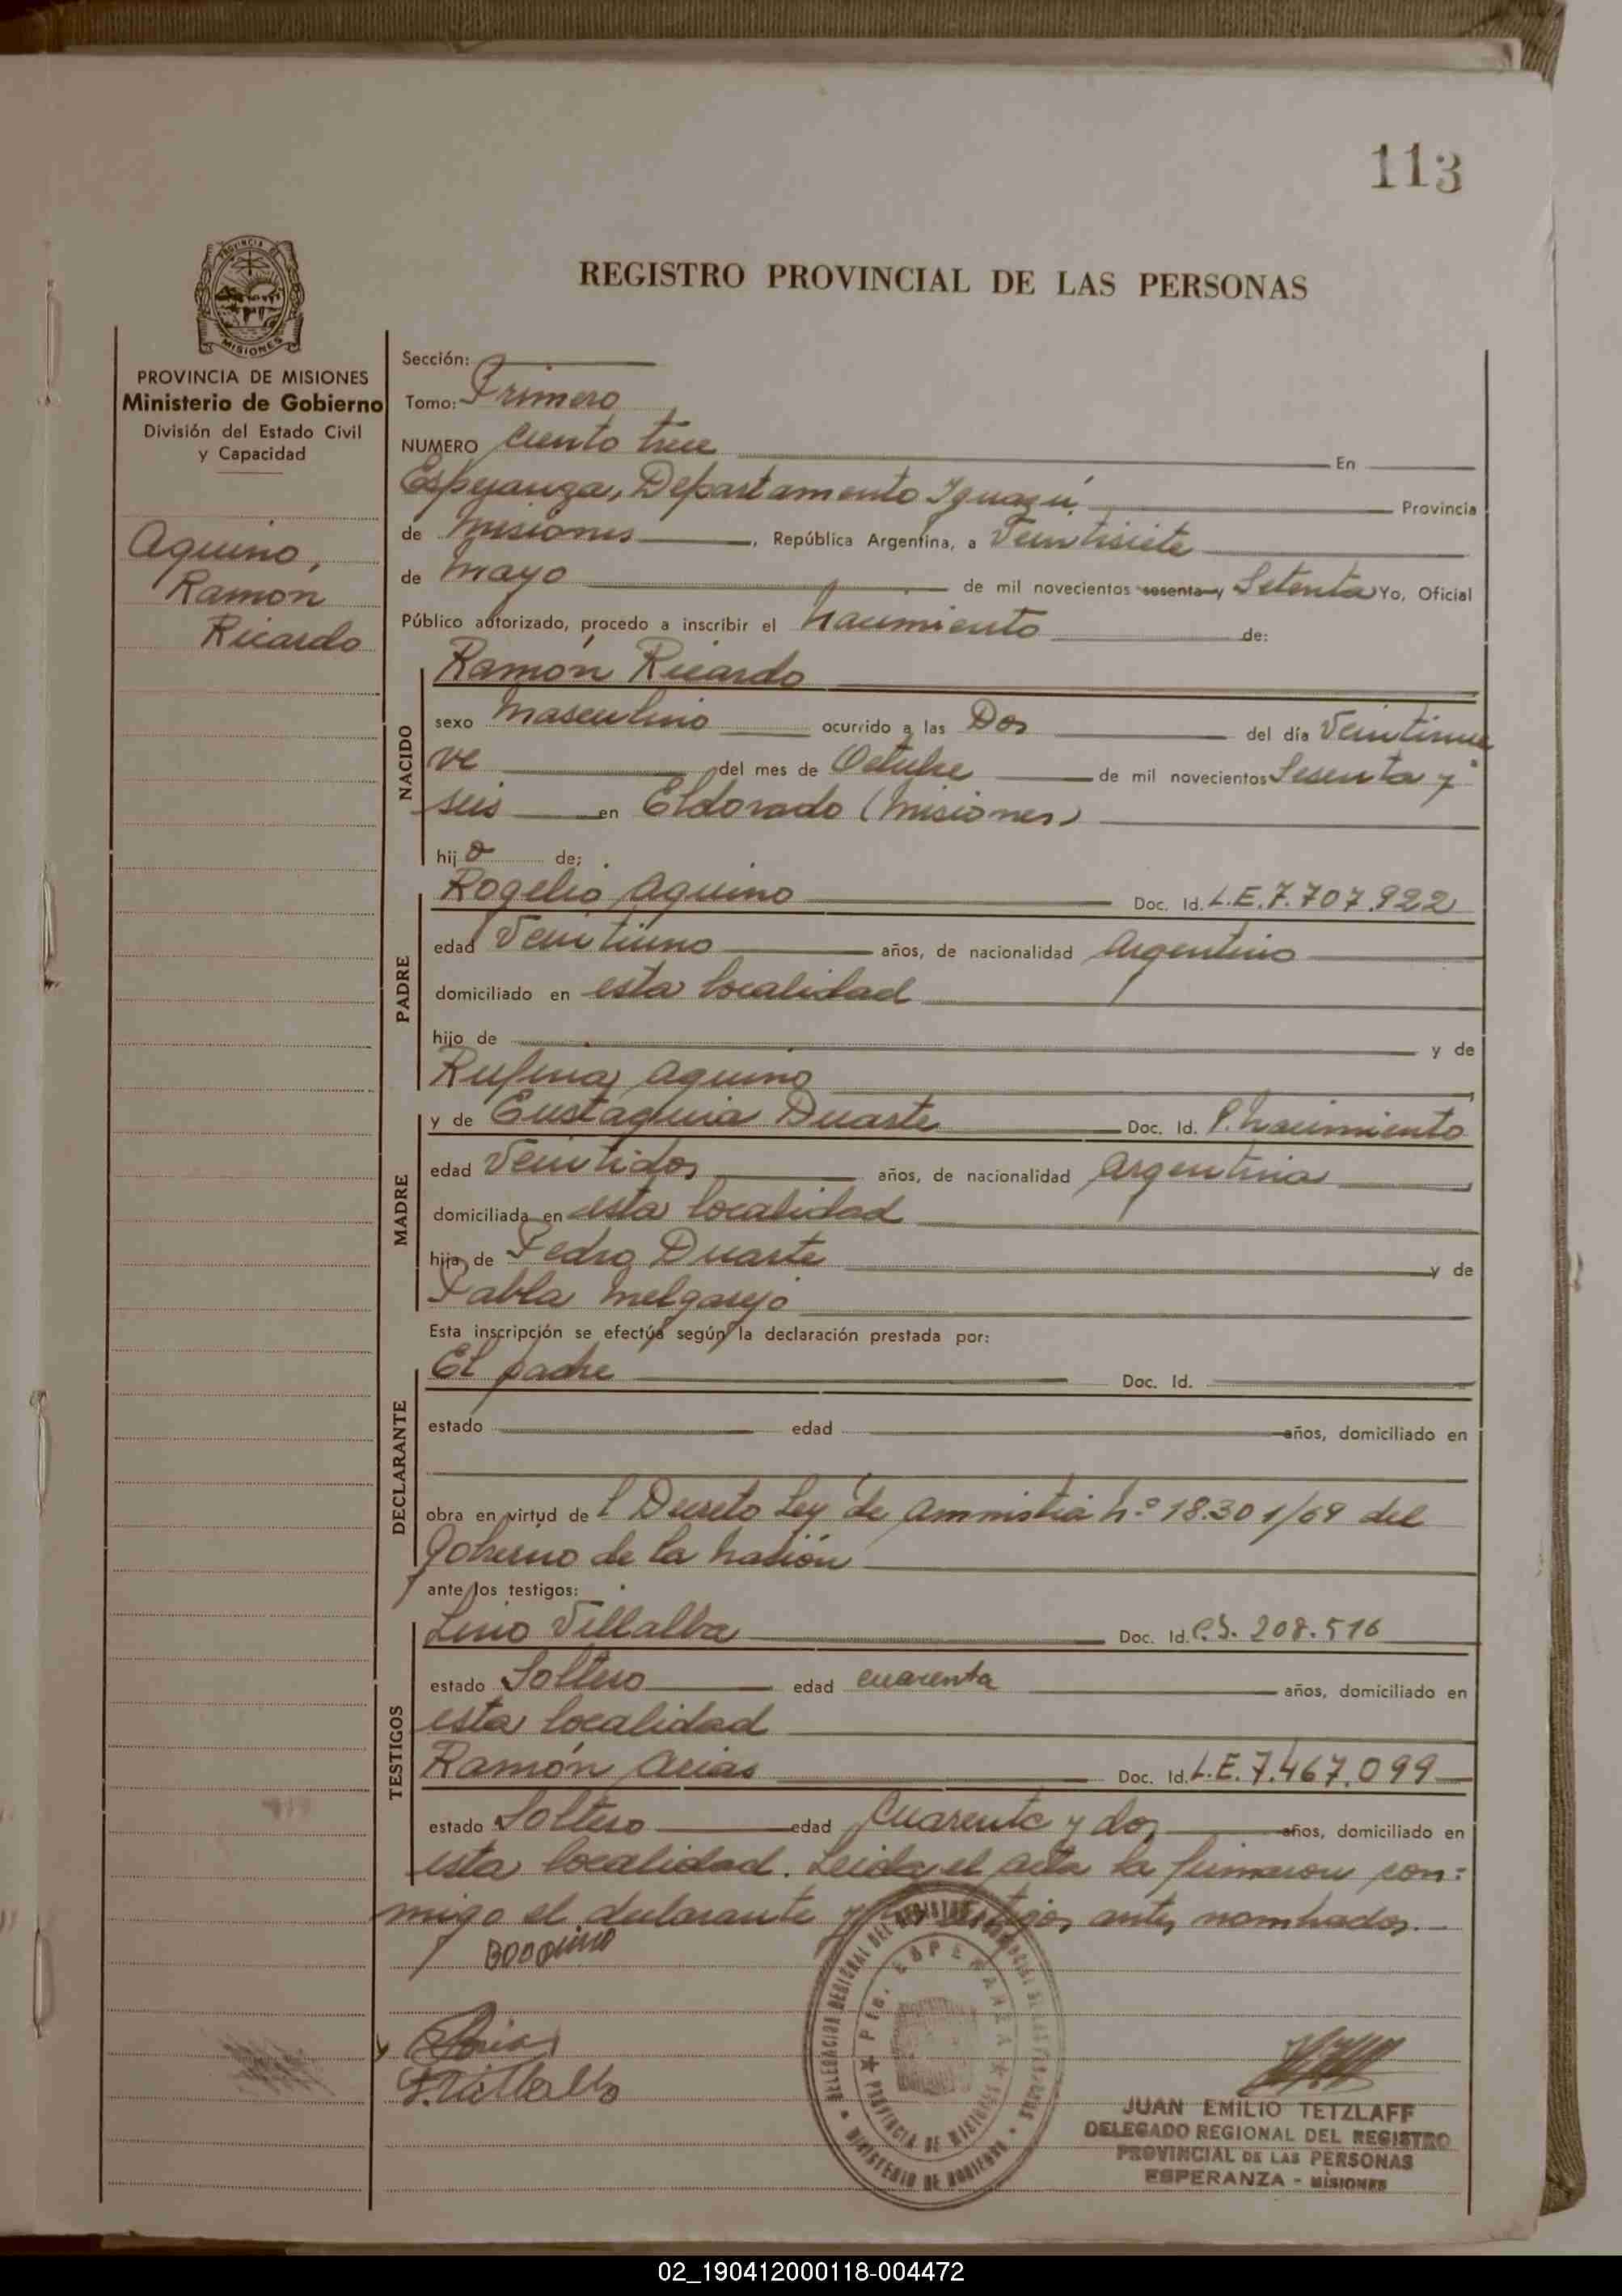 113
REGISTRO PROVINCIAL DE LAS PERSONAS
PROVINCIA DE
MISIONES
PROVINCIA DE MISIONES
Ministerio de Gobierno
División del Estado Civil
y Capacidad
Aquino,
Ramón
Ricardo
Sección:
Tomo: Primero
NUMERO Ciento trece En
Esperanza, Departamento Iguazú. Provincia
de Misiones, República Argentina, a Veintisiete
de Mayo de mil novecientos sesenta y Setenta Yo, Oficial
Público autorizado, procedo a inscribir el Nacimiento de:
Ramón Ricardo
NACIDO
sexo Masculino ocurrido a las Dos del día Veintinue
ve del mes de Octubre de mil novecientos Sesenta y
seis en Eldorado (Misiones)
hij o de:
PADRE
Rogelio Aquino Doc. Id. L.E. 7.707.922
edad Veintiuno años, de nacionalidad Argentino
domiciliado en esta localidad
hijo de y de
Rufina Aquino
MADRE
y de Eustaquia Duarte Doc. Id. P. Nacimiento
edad Veintidos años, de nacionalidad Argentina
domiciliada en esta localidad
hija de Pedro Duarte y de
Pabla Melgarejo
Esta inscripción se efectúa según la declaración prestada por:
DECLARANTE
El padre Doc. Id.
estado edad años, domiciliado en
obra en virtud de l Decreto Ley de Amnistia Nº 18.301/69 del
Gobierno de la Nación
ante los testigos:
TESTIGOS
Lino Villalba Doc. Id. 208.516
estado Soltero edad cuarenta años, domiciliado en
esta localidad
Ramón Arias Doc. Id. L.E. 7.467.099
estado Soltero edad Cuarenta y dos años, domiciliado en
esta localidad. Leida el acta la firmaron con=
migo el declarante y los testigos antes nombrados.
DELEGACION REGIONAL DEL REGISTRO PROVINCIAL DE LAS PERSONAS
MINISTERIO DE GOBIERNO
ESPERANZA
PROVINCIA DE MISIONES
JUAN EMILIO TETZLAFF
DELEGADO REGIONAL DEL REGISTRO
PROVINCIAL DE LAS PERSONAS
ESPERANZA - MISIONES
02_190412000118-004472